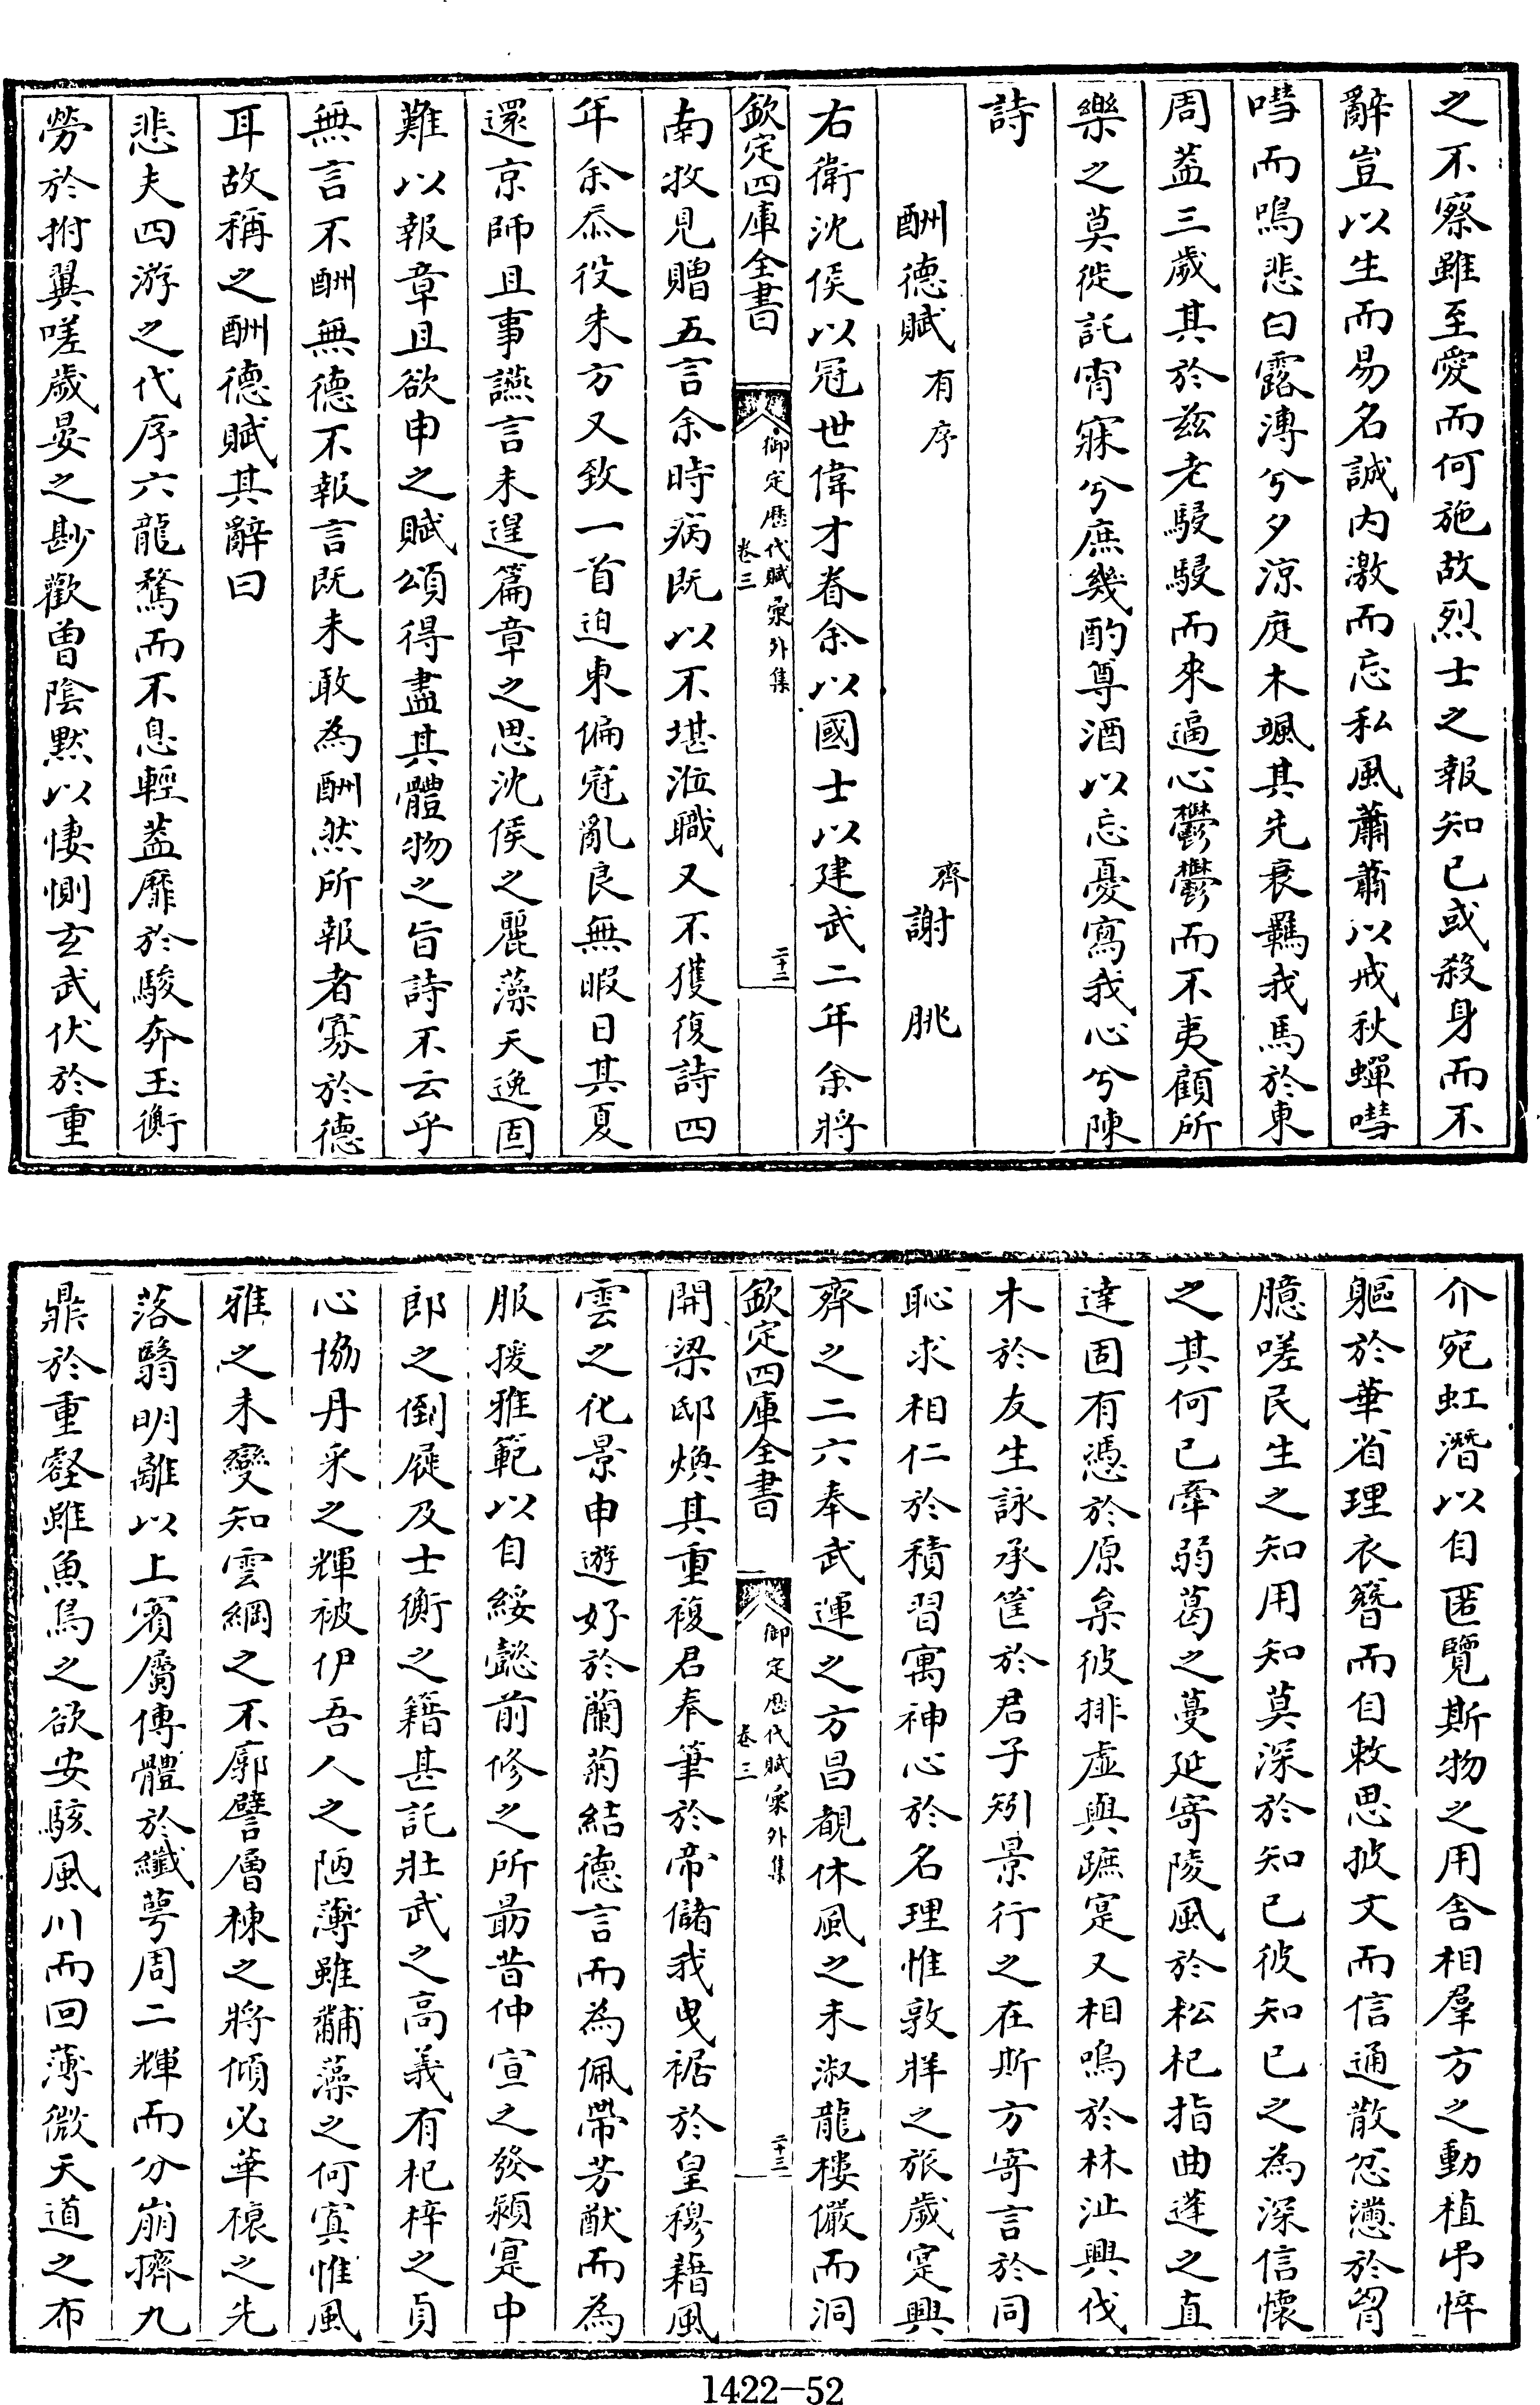 之不察雖至愛而何施故烈士之報知已或殺身而不
辭豈以生而易名誠内激而忘私風蕭蕭以戒秋蟬嘒
嘒而鳴悲白露漙兮夕涼庭木颯其先衰羈我馬於東
周葢三歲其於兹老駸駸而來逼心鬱鬱而不夷顧所
樂之莫從託宵寐兮庶幾酌尊酒以忘憂寫我心兮陳
詩
酬德賦有序　齊謝朓
右衛沈侯以冠世偉才眷余以國士以建武二年余將
欽定四庫全書　御定歷代賦彙外集卷三　二十二
南牧見贈五言余時病既以不堪涖職又不獲復詩四
年余忝役朱方又致一首迫東偏寇亂良無暇日其夏
還京師且事讌言未遑篇章之思沈侯之麗藻天逸固
難以報章且欲申之賦頌得盡其體物之旨詩不云乎
無言不酬無德不報言既未敢為酬然所報者寡於德
耳故稱之酬德賦其辭曰
悲夫四游之代序六龍騖而不息輕葢靡於駿奔玉衡
勞於拊翼嗟歲晏之尠歡曾陰黙以悽惻玄武伏於重
介宛虹潛以自匿覽斯物之用舍相羣方之動植弔悴
軀於華省理衣簪而自敕思披文而信通散忿懣於胷
臆嗟民生之知用知莫深於知已彼知已之為深信懷
之其何已牽弱葛之蔓延寄陵風於松杞指曲蓬之直
達固有憑於原枲彼排虚與蹠寔又相鳴於林沚興伐
木於友生詠承筐於君子矧景行之在斯方寄言於同
恥求相仁於積習寓神心於名理惟敦牂之旅歲寔興
齊之二六奉武運之方昌覩休風之未淑龍樓儼而洞
欽定四庫全書　御定歷代賦彙外集卷三　二十三
開梁邸煥其重複君奉筆於帝儲我曳裾於皇穆藉風
雲之化景申遊好於蘭菊結德言而為佩帶芳猷而為
服援雅範以自綏懿前修之所勗昔仲宣之發潁寔中
郎之倒屣及士衡之籍甚託壯武之高義有杞梓之貞
心協丹采之輝被伊吾人之陋薄雖黼藻之何寘惟風
雅之未變知雲綱之不廓譬層棟之將傾必華榱之先
落翳明離以上賓屬傳體於纖萼周二輝而分崩擠九
鼎於重壑雖魚鳥之欲安駭風川而回薄微天道之布
1422-52